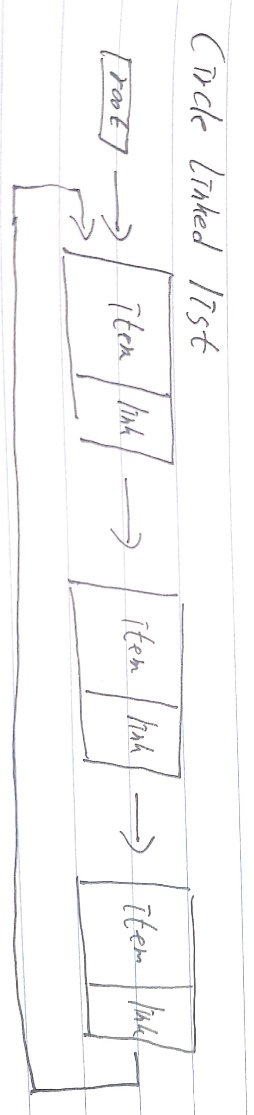 Circle Linked list
root
item link
item link
item link